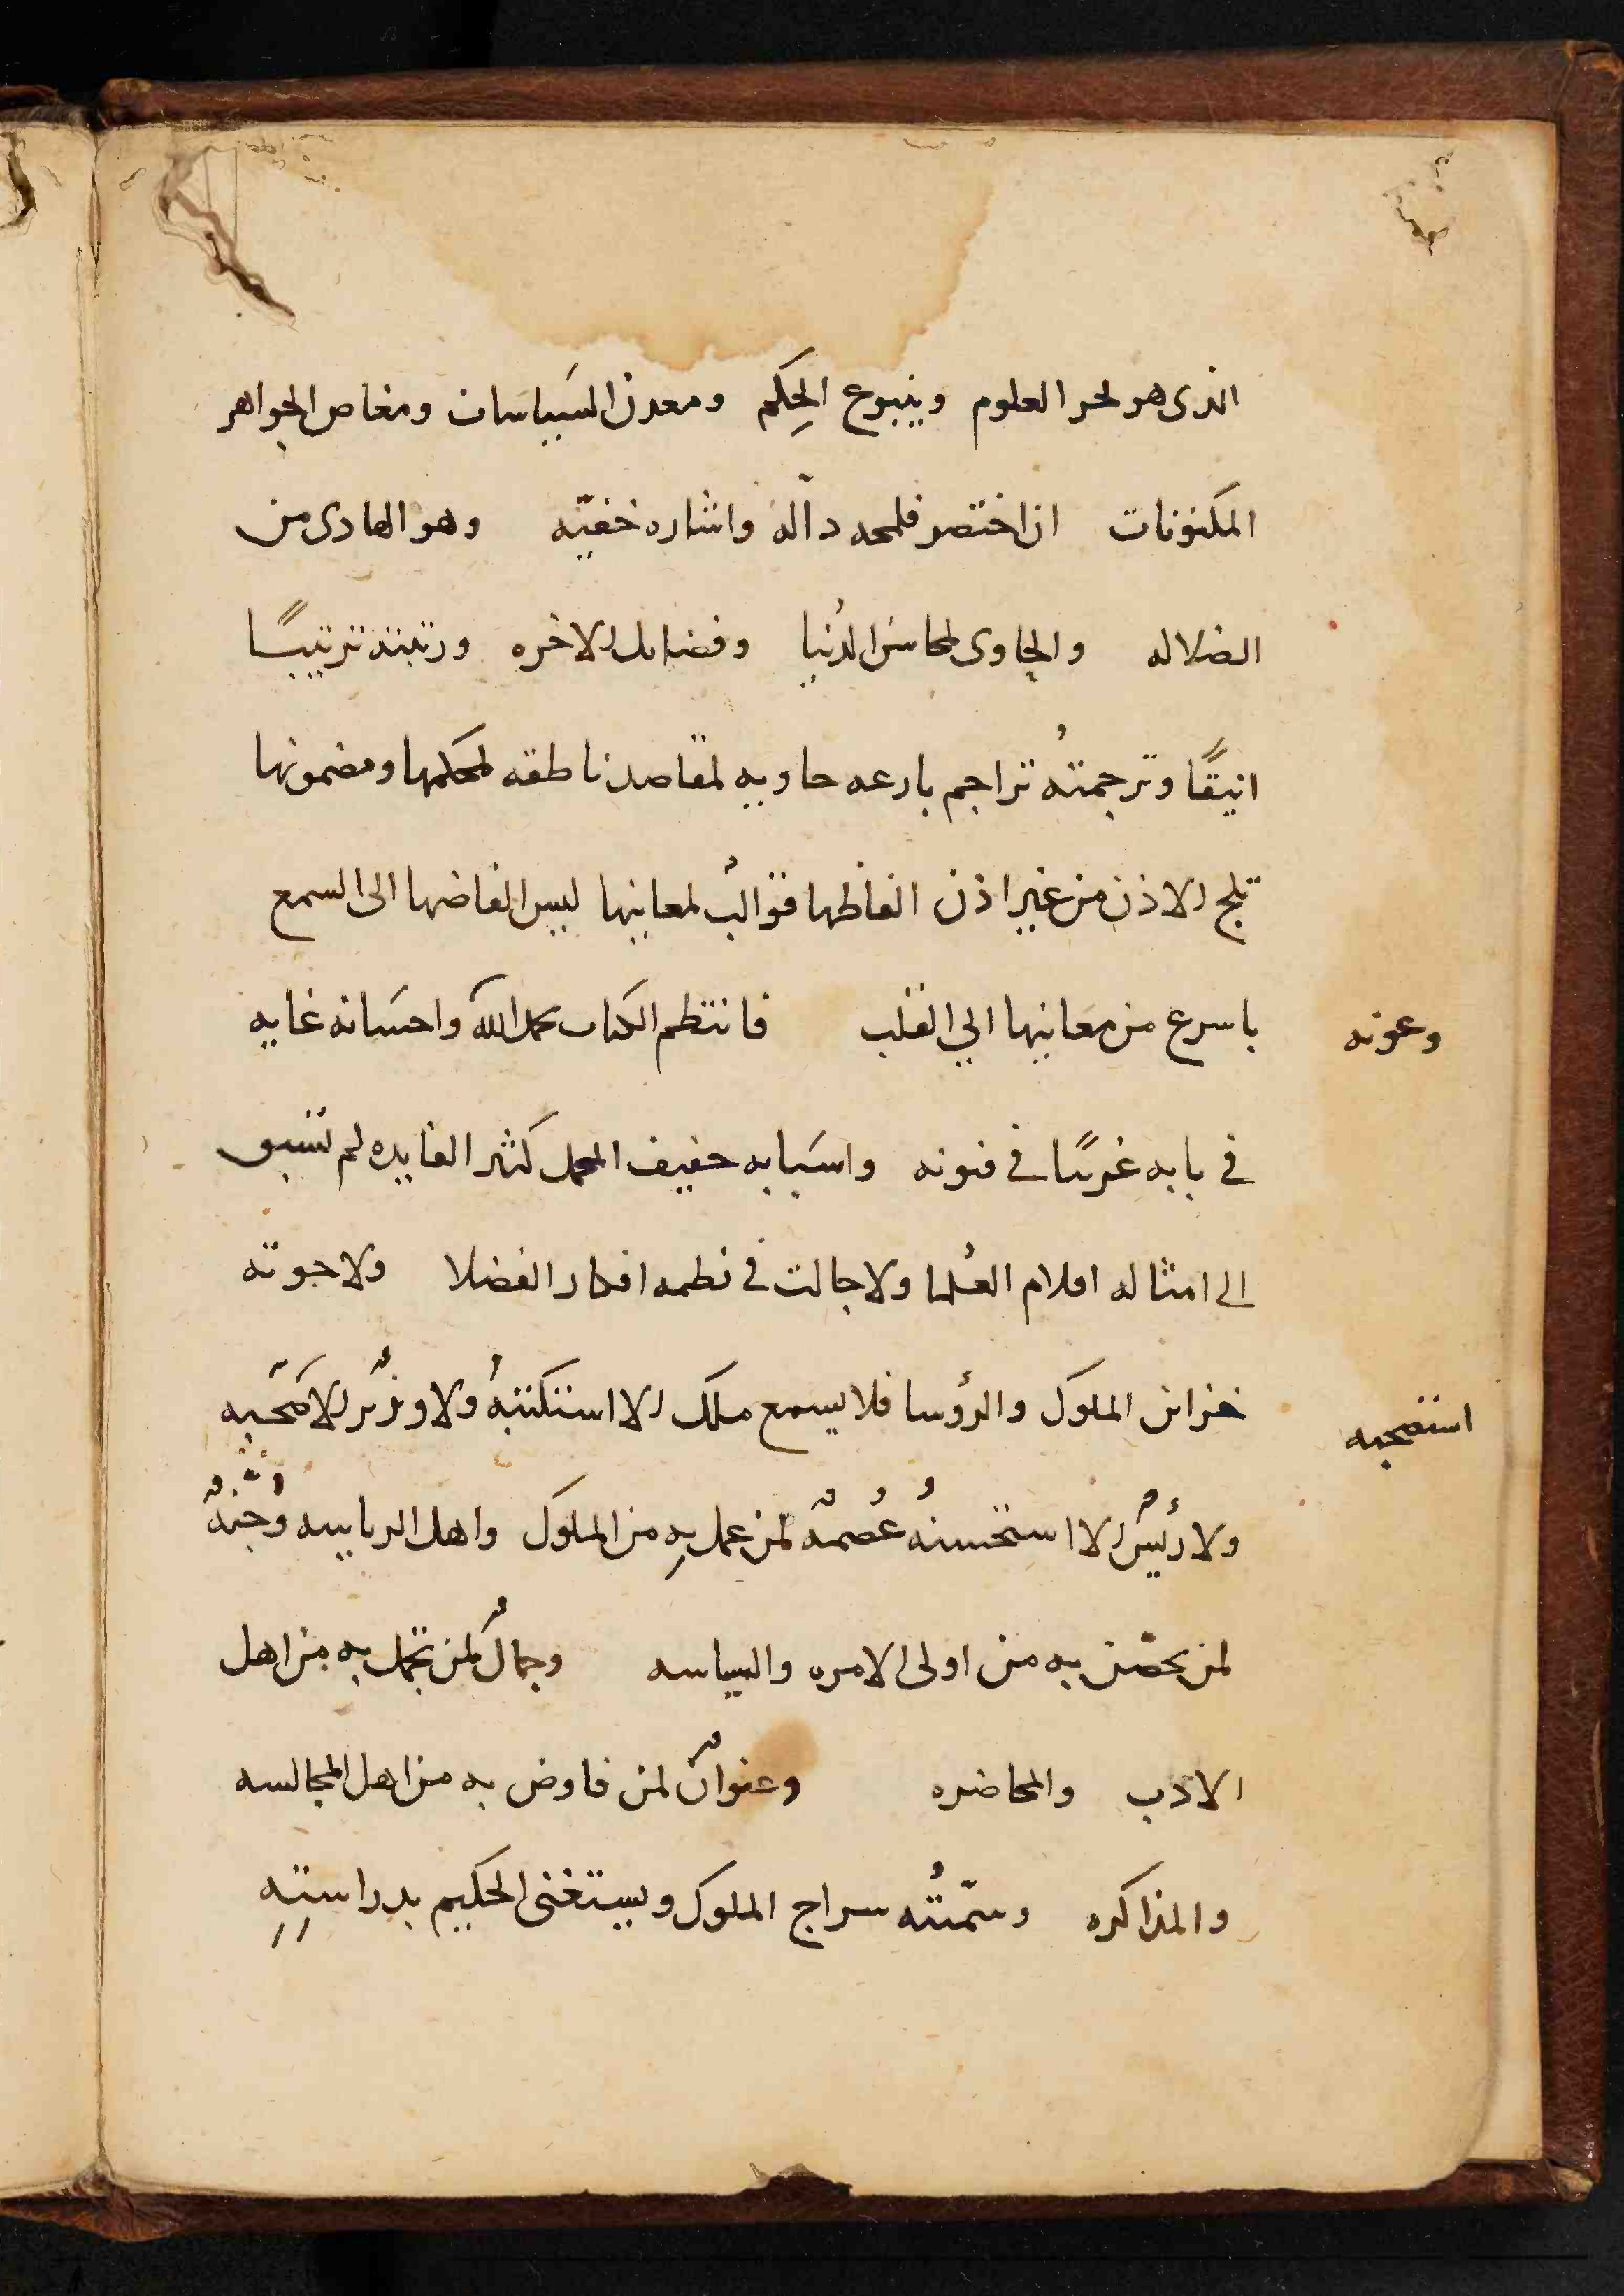 الذى هو بحر العلوم وينبوع الحِكَم ومعدن السَياسات ومغاص الجواهر
المكنونات ان اختصر فلمحه دآلة واشاره خفيّه وهو الهادى من
الضلاله والحاوى لمحاسن الدُنيا وفضايل الاخره ورتبته ترتيبًا
انيقًا وترجمتهُ تراجم بارعه حاويه لمقاصد ناطقه بحكمها ومضمونها
تلج الاذن من غير اذن الفاظها قوالبُ لمعانيها ليس الفاضها الى السمع
باسرع من معانيها الي القلب فانتظم الكتاب بحمد الله واحسَانه غايه
وعونه
في بابه غريبًا في فنونه واسَبابه خفيف المحمل كثير الفايده لم تسبق
الى امثاله اقلام العُلما ولا جالت في نظمه افكار الفضلا ولا حوته
خزائن الملوك والرؤسا فلا يسمع ملك الا استكتبهُ ولا وزيرٌ الا صَحبه
استصحبه
ولا رئيسٌ الا استحسنهُ عُصمهٌ لمن عمل بهِ من الملوك واهل الرياسه وجُنهٌ
لمن تحصّن به من اولى الامره والسياسه وجمالٌ لمن تجمل به من اهل
الادب والمحاضره وعنوانٌ لمن فاوض به من اهل المجالسه
والمذاكره وسمّيتُه سراج الملوك ويستغنى الحكيم بدراستهِ